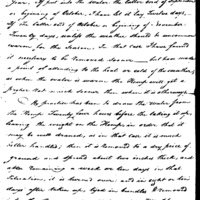 year. If put into the water the latter end of September
or beginning of October, I have let it lay twenty days.
If the latter end of October or beginning of November
Twenty days, unless the weather should be uncommon
warm for the season. In that case I have found
it necessary to be removed sooner, but have made
a point of attending to the heat or cold of the weather,
as when the water is warm the Hemp will get
proper. Not much sooner than when it is otherwise
My practice has been to draw the water from
the Hemp Twenty four hours before the taking it up,
leaving the weight on the Hemp in order that it
may be well drained, as in that case it is much
better handled; then it is removed to a dry piece of
ground and spread about two inches thick, and
after remaining a week or ten days in that
situation, it is turned over, and in eight or ten
days after taken up, tyed in bundles & removed